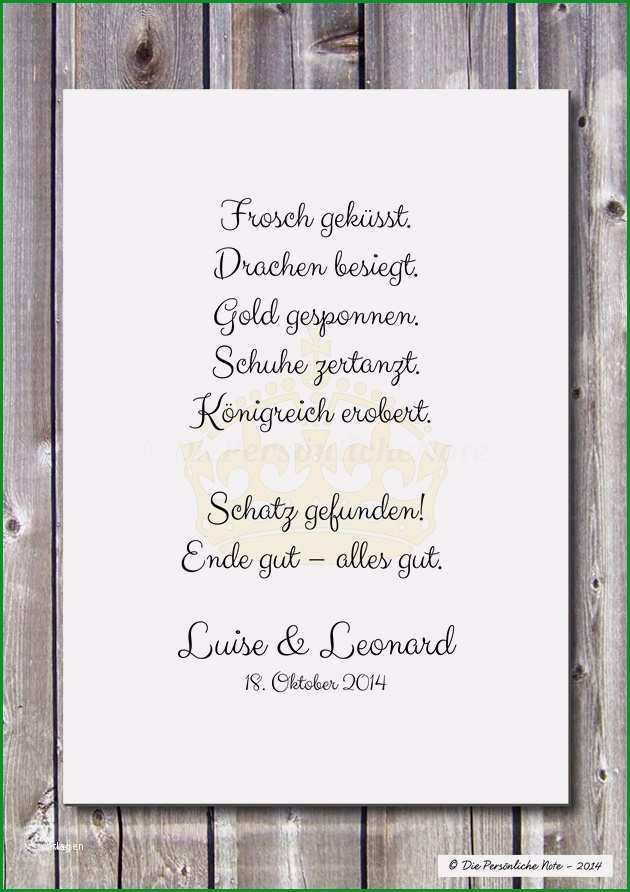 Frosch geküsst.
Drachen besiegt.
Gold gesponnen.
Schuhe zertanzt.
Königreich erobert.
Persönliche Note
Schatz gefunden!
Ende gut – alles gut.
Luise & Leonard
18. Oktober 2014
© Die Persönliche Note - 2014